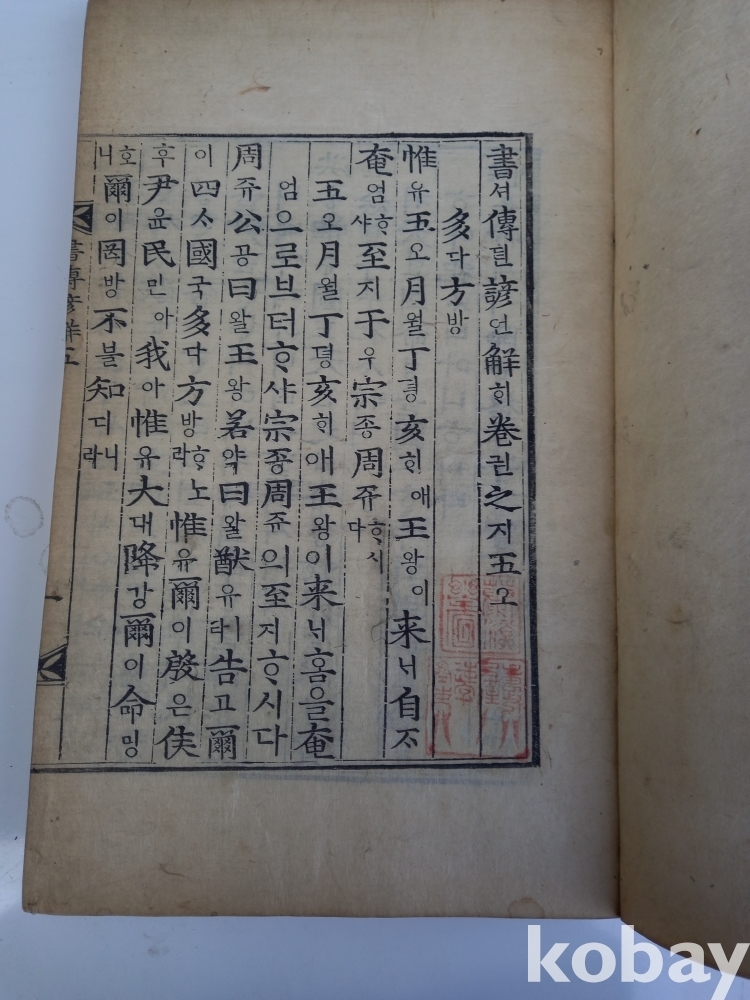 書셔傳뎐諺언解ᄒᆡ卷권之지五오
多다方방
惟유五오月월丁뎡亥ᄒᆡ애王왕이来ᄅᆡ自ᄌᆞ
奄엄ᄒᆞ샤至지于우宗종周쥬ᄒᆞ시다
五오月월丁뎡亥ᄒᆡ애王왕이来ᄅᆡ홈을奄
엄으로브터ᄒᆞ샤宗종周쥬의至지ᄒᆞ시다
周쥬公공曰왈王왕若약曰왈猷유ㅣ라告고爾
이四ᄉᆞ國국多다方방ᄒᆞ노라惟유爾이殷은侯
후尹윤民민아我아惟유大대降강爾이命명
호니爾이罔방不블知디니라
書傳諺解五
kobay